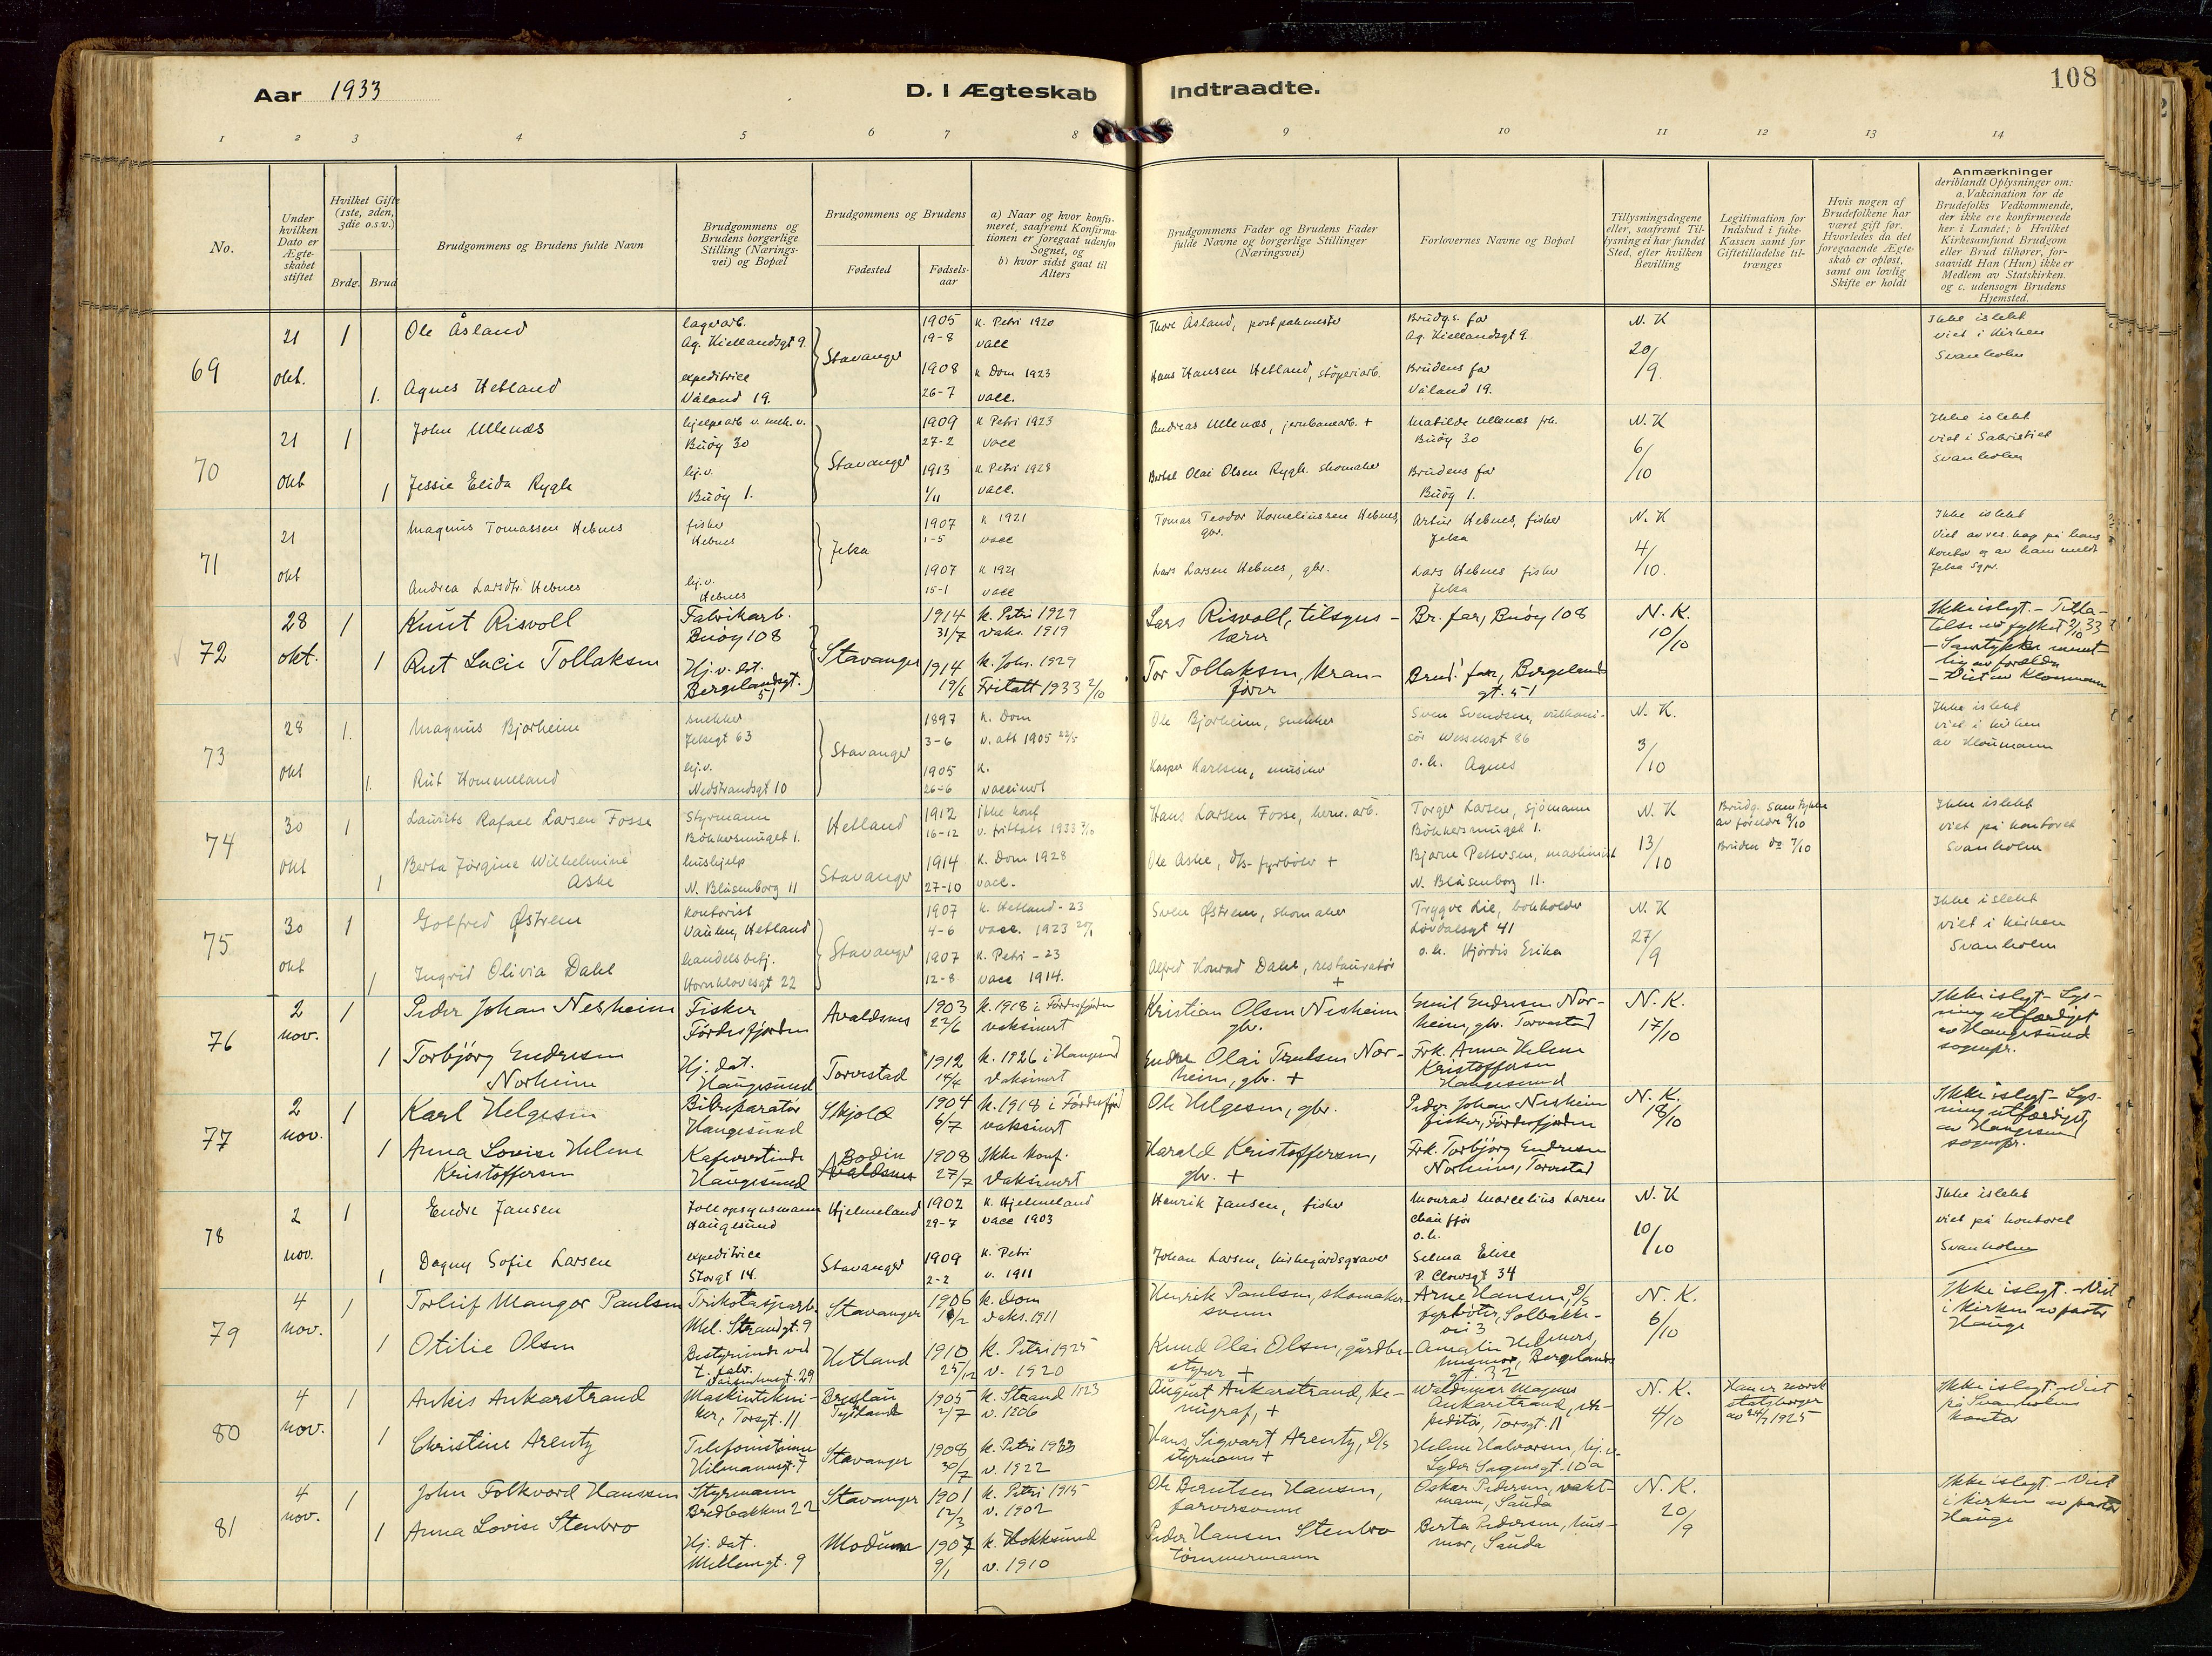 Aar 1933
D. I Ægteskab Indtraadte.
108
1 2 3 4 5 6 7 8 9 10 11 12 13 14
No.
Under hvilken Dato er Ægte-skabet stiftet
Hvilket Gifte (1ste, 2den, 3die o.s.v.)
Brdg. Brud
Brudgommens og Brudens fulde Navn
Brudgommens og Brudens borgerlige Stilling (Nærings-vei) og Bopæl
Brudgommens og Brudens
Fødested Fødsels-aar
a) Naar og hvor konfir-meret, saafremt Konfirma-tionen er foregaat udenfor Sognet, og b) hvor sidst gaat til Alters
Brudgommens Fader og Brudens Fader fulde Navne og borgerlige Stillinger (Næringsvei)
Forlovernes Navne og Bopæl
Tillysningsdagene eller, saafremt Til-lysning ei har fundet Sted, efter hvilken Bevilling
Legitimation for Indskud i Enke-Kassen samt for Giftetilladelse til-trænges
Hvis nogen af Brudefolkene har været gift før. Hvorledes da det foregaaende Ægte-skab er opløst, samt om lovlig Skifte er holdt
Anmærkninger deriblandt Oplysninger om: a. Vakcination for de Brudefolks Vedkommende, der ikke ere konfirmerede her i Landet; b Hvilket Kirkesumfund Brudgom eller Brud tilhører, for-saavidt Han (Hun) ikke er Medlem av Statskirken. og c. udensogn Brudens Hjemsted.
69 21 okt. 1 Ole Åsland lagerarb. Ag. Kiellandsgt 9. Stavanger 1905 19-8 k. Petri 1920 vacc Thore Åsland, postpakmester Brudgs. far Ag. Kiellandsgt 9. N. K 20/9. Ikke islekt viet i kirken Svanholm
1. Agnes Hetland expeditrice Våland 19. 1908 26-7 k Dom 1923 vacc. Hans Hansen Hetland, støperiarb. Brudens far Våland 19.
70 21 okt 1 John Ullenæs hjelpearb v. mek. v. Buøy 30 Stavanger 1909 27-2 k Petri 1923 vacc Andreas Ullenæs, jernbanearb. + Matilde Ullenæs frk. Buøy 30 N. K 6/10 Ikke islekt viet i Sakristiet Svanholm
1 Jessie Elida Rygh hj.v. Buøy 1. 1913 1/11 k. Petri 1928 vacc. Bertel Olai Olsen Rygh. skomaker Brudens far Buøy 1.
71 21 okt Magnus Tomassen Hebnes fisker Hebnes Jelsa 1907 1-5 k 1921 vacc Tomas Teodor Korneliussen Hebnes, gbr. Artur Hebnes, fisker Jelsa N. K 4/10. Ikke islekt Viet av res. kap på hans kontor og av ham meldt Jelsa sgpr.
Andrea Larsdtr Hebnes hj.v. Hebnes 1907 15-1 k 1921 vacc Lars Larsen Hebnes, gbr. Lars Hebnes fisker Jelsa
72 28 okt. 1 Knut Risvoll Fabrikarb. Buøy 108 Stavanger 1914 31/7 k. Petri 1929 vaks. 1919 Lars Risvoll, tilsyns-lærer Br. far, Buøy 108 N. K. 10/10 Ikke islegt. - Tilla-telse av fylket 9/10 33 - Samtykke munt-lig av foreldre - Viet av Kloumann
1 Rut Lucie Tollaksen Hj. v. dat. Bergelandsgt. 51 1914 19/6 k. Joh. 1929 Fritatt 1933 2/10 Tor Tollaksen, kran-fører Brud. far, Bergelands gt. 51
73 28 okt 1. Magnus Bjorheim snekker Jelsegt 63 Stavanger 1897 3-6 k. Dom v. att 1905 22/5 Ole Bjorheim, snekker Sven Svendsen, vulkani-sør Wesselsgt 86 N. K. 3/10 Ikke islekt viet i kirken av Kloumann
1. Rut Hommeland hj.v. Nedstrandsgt 10 1905 26-6 k. vaccinert Kasper Karlsen, murer o. h. Agnes
74 30 okt 1 Laurits Rafael Larsen Fosse Styrmann Bøkkersmuget 1. Hetland 1912 16-12 ikke konf v. frittatt 1933 Hans Larsen Fosse, herm. arb. Torger Larsen, sjømann Bøkkersmuget 1. N. K 13/10 Brudg. samtykke av foreldre 9/10 Bruden do 7/10 Ikke islekt viet på kontoret Svanholm
1 Berta Jørgine Wilhelmine Aske hushjelp N. Blåsenborg 11 Stavanger 1914 27-10 k. Dom 1928 vacc. Ole Aske, D/S-fyrbøter + Bjarne Pettersen, maskinist N. Blåsenborg 11.
75 30 okt 1 Gotfred Østrem kontorist Vaulen, Hetland Stavanger 1907 4-6 k. Hetland - 23 vacc. 1923 Sven Østrem, skomaker Trygve Lie, bokholder Løvdalsgt 41 N. K 27/9 Ikke islekt viet i kirken Svanholm
1 Ingrid Olivia Dahl handelsbetj. Hornklovesgt 22 1907 12-8 k. Petri - 23 vacc 1914. Alfred Konrad Dahl, restauratør + o. h. Hjørdis Erika
76 2 nov. 1 Peder Johan Nesheim Fisker Førdesfjorden Avaldsnes 1903 22/6 k. 1918 i Førdesfjorden vaksinert Kristian Olsen Nesheim gbr. Emil Endresen Nor-heim, gbr. Torvestad N. K. 17/10 Ikke islegt - Lys-ning utferdiget av Haugesund sognepr.
1 Torbjørg Endresen Norheim Hj. dat. Haugesund Torvestad 1912 14/4 k. 1926 i Haugesund Vaksinert Endre Olai Trulsen Nor-heim, gbr. + Frk. Anna Helene Kristoffersen Haugesund
77 2 nov. 1 Karl Helgesen Bilreparatør Haugesund Skjold 1904 6/7 k. 1918 i Førdesfjord vaksinert Ole Helgesen, gbr. Peder Johan Nesheim fisker, Førdesfjorden N. K. 18/10 Ikke islegt - Lys-ning utferdiget av Haugesund sognepr.
1 Anna Lovise Helene Kristoffersen Kafevertinde Haugesund Bodin Avaldsnes 1908 27/7 Ikke konf. Vaksinert Harald Kristoffersen, gbr. + Frk. Torbjørg Endresen Norheim, Torvestad
78 2 nov. 1 Endre Jansen Tollopsynsmann Haugesund Hjelmeland 1902 29-7 k. Hjelmeland vacc 1903 Henrik Jansen, fisker Monrad Marcelius Larsen chauffør o. h. N. K 10/10 Ikke islekt viet på kontoret Svanholm
1 Dagny Sofie Larsen expeditrice Storgt 14. Stavanger 1909 2-2 k. Petri v. 1911 Johan Larsen, kirkegårdsgraver Selma Elise P. Clowsgt 34
79 4 nov. 1 Torleif Mangor Paulsen Trikotasjearb. Mel. Strandgt. 9 Stavanger 1906 k. Dom vaks. 1911 Henrik Paulsen, skomaker-svenn Arne Hansen, D/S fyrbøter, Solbakke-vei 3 N. K. 6/10 Ikke islegt. - Viet i kirken av pastor Hauge
1 Otilie Olsen Bestyrerinde ved Vaisenhusgt. 29 Hetland 1910 25/12 k. Petri 1925 v. 1920 Knud Olai Olsen, gårdbe-styrer + Amalie Helmers, husmor, Bergelands gt. 32
80 4 nov. 1 Ankis Ankarstrand Maskintekni-ker, Torsgt. 11 Breslau Tyskland 1905 2/7 k. Strand 1923 v. 1906 August Ankarstrand, ke-migraf, + Waldemar Magnus Ankarstrand, eks-peditør, Torsgt. 11 N. K. 4/10 Han er norsk statsborger av 24/7 1925 Ikke islegt. - Viet på Svanholms kontor
1 Christine Arentz Telefonistinne Hilmannsgt. 7 Stavanger 1908 30/7 k. Petri 1923 v. 1922 Hans Sigvart Arentz, D/S styrmann + Helene Halvorsen, hj. v. Lyder Sagensgt. 10a
81 4 nov. 1 John Folkvord Hanssen Styrmann Bredbakken 22 Stavanger 1901 12/3 k. Petri 1915 v. 1902 Ole Berntsen Hansen, farversvenn Oskar Pedersen, vakt-mann, Sauda N. K. 20/9 Ikke islegt. - Viet i kirken av pastor Hauge
1 Anna Lovise Stenbro Hj. dat. Mellemgt. 9 Modum 1907 9/1 k. Hokksund v. 1910 Peder Hansen Stenbro tømmermann Berta Pedersen, hus-mor, Sauda